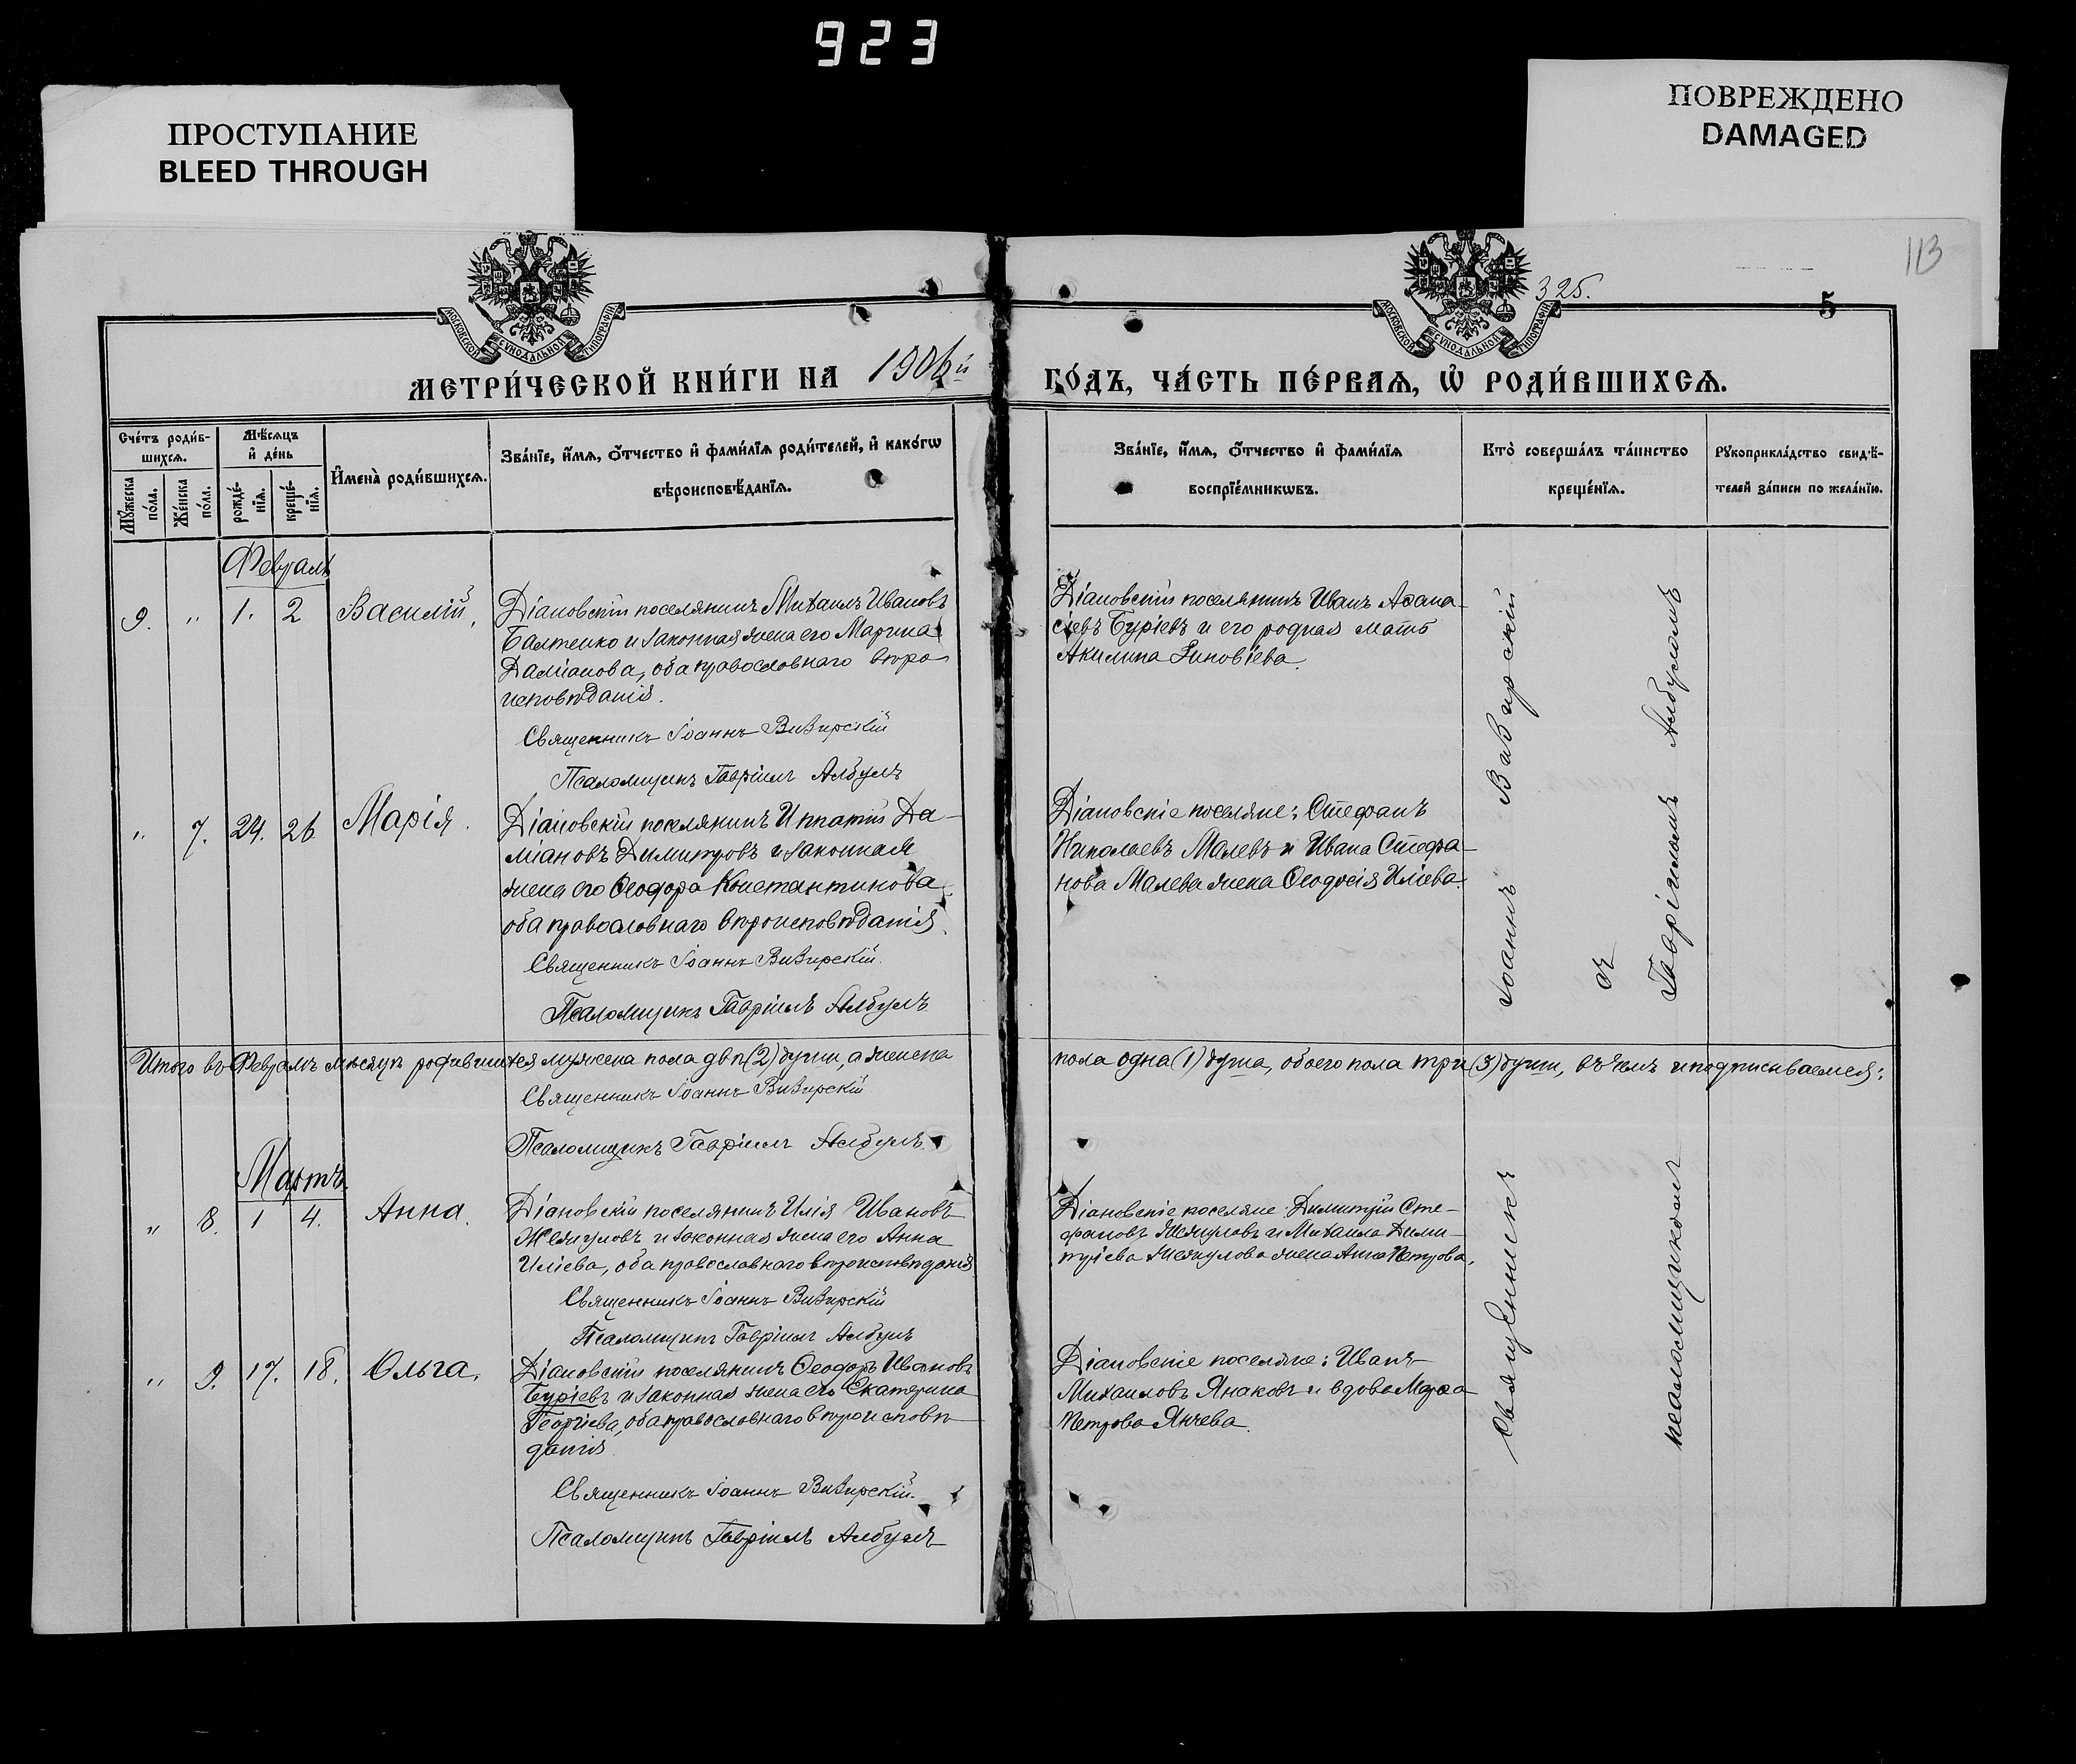 923
ПРОСТУПАНИЕ
BLEED THROUGH
ПОВРЕЖДЕНО
DAMAGED
113
325.
5
МОСКОВСКОЙ СѴНОДАЛЬНОЙ ТИПОГРАФІИ
МОСКОВСКОЙ СѴНОДАЛЬНОЙ ТИПОГРАФІИ
МЕТРИ́ЧЕСКОЙ КНИ́ГИ НА 1906й ГО́ДЪ, ЧА́СТЬ ПЕ́РВАѦ, Ѡ҆ РОДИ́ВШИХСѦ.
Сче́тъ роди́в-
шихсѧ.
Мꙋ́жеска по́ла.
Же́нска по́ла.
Мѣ́сѧцъ и҆ де́нь
рожде́-
нїѧ.
креще́-
нїѧ.
И҆мена̀ роди́вшихсѧ.
Зва́нїе, и҆́мѧ, ѻ҆́тчество и҆ фами́лїѧ роди́телей, и҆ како́гѡ
вѣроисповѣ́данїѧ.
Зва́нїе, и҆́мѧ, ѻ҆́тчество и҆ фами́лїѧ
воспрїе́мникѡвъ.
Кто̀ соверша́лъ та́инство
креще́нїѧ.
Рꙋкоприкла́дство свидѣ́-
телей за́писи по жела́нїю.
Февраль
9. " 1. 2 Василій,
Діановскій поселянинъ Михаилъ Ивановъ
Балтенко и законная жена его Марина
Даміанова, оба православнаго вѣро-
исповѣданія.
Священникъ Іоаннъ Визирскій
Псаломщикъ Гавріилъ Албулъ
Діановскій поселянинъ Иванъ Аѳана-
сіевъ Буріевъ и его родная мать
Акилина Зиновіева.
" 7. 24. 26 Марія.
Діановскій поселянинъ Ипатій Да-
міановъ Димитровъ и законная
жена его Ѳеодора Константинова,
оба православнаго вѣроисповѣданія.
Священникъ Іоаннъ Визирскій.
Псаломщикъ Гавріилъ Албулъ
Діановскіе поселяне: Стефанъ
Николаевъ Малевъ и Ивана Стефа-
нова Малева жена Ѳеодосія Иліева.
Итого въ Февралѣ мѣсяцѣ родившихся мужеска пола двѣ (2) души, а женска пола одна (1) душа, обоего пола три (3) души, въ чемъ и подписываемся:
Священникъ Іоаннъ Визирскій
Псаломщикъ Гавріилъ Албулъ.
Мартъ.
" 8. 1 4. Анна.
Діановскій поселянинъ Илія Ивановъ
Жекуловъ и законная жена его Анна
Иліева, оба православнаго вѣроисповѣданія
Священникъ Іоаннъ Визирскій
Псаломщикъ Гавріилъ Албулъ
Діановскіе поселяне: Димитрій Сте-
фановъ Жекуловъ и Михаила Дими-
тріева Жекулова жена Анна Петрова.
" 9. 17. 18. Ольга.
Діановскій поселянинъ Ѳеодоръ Ивановъ
Буріевъ и законная жена его Екатерина
Георгіева, оба православнаго вѣроисповѣ-
данія
Священникъ Іоаннъ Визирскій.
Псаломщикъ Гавріилъ Албулъ
Діановскіе поселяне: Иванъ
Михаиловъ Янаковъ и вдова
Петрова Янчева.
Священникъ Іоаннъ Визирскій
съ
псаломщикомъ Гавріиломъ Албуломъ